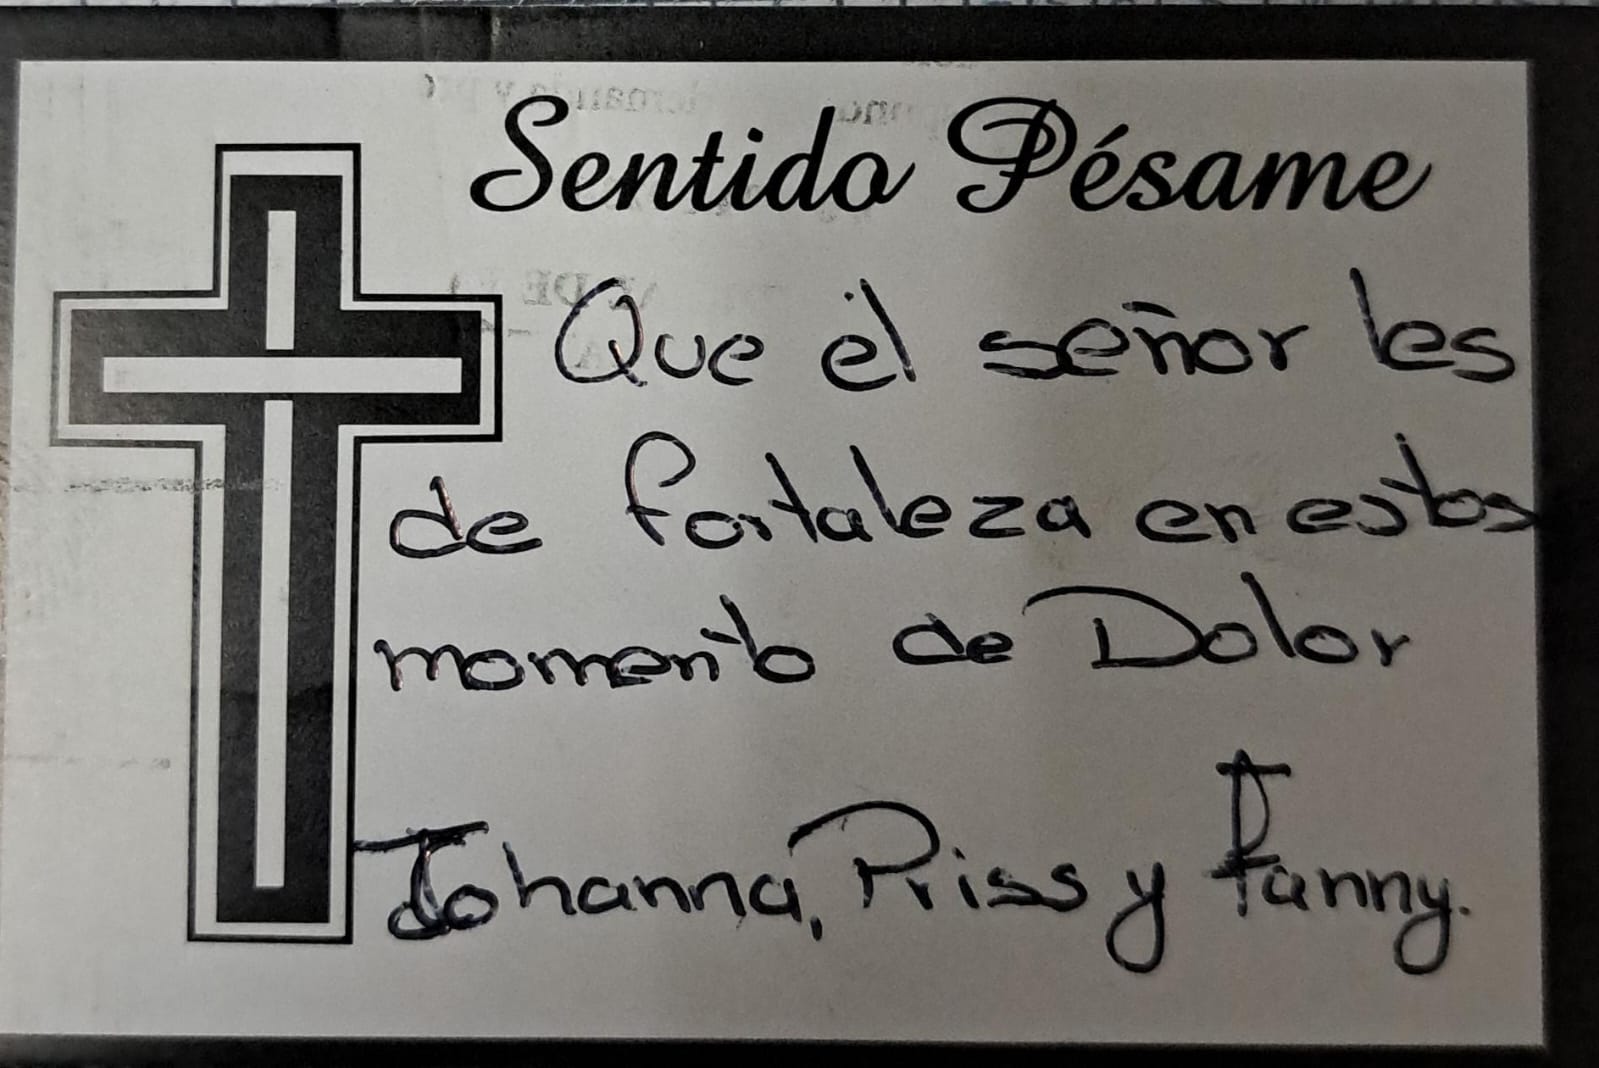 Sentido Pésame
Que él señor les
de fortaleza en estos
momento de Dolor
Johanna, Priss y Fanny.